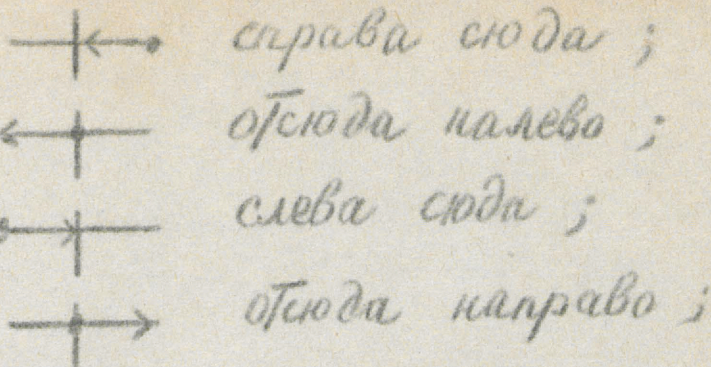 справа сюда ;
отсюда налево ;
слева сюда ;
отсюда направо ;